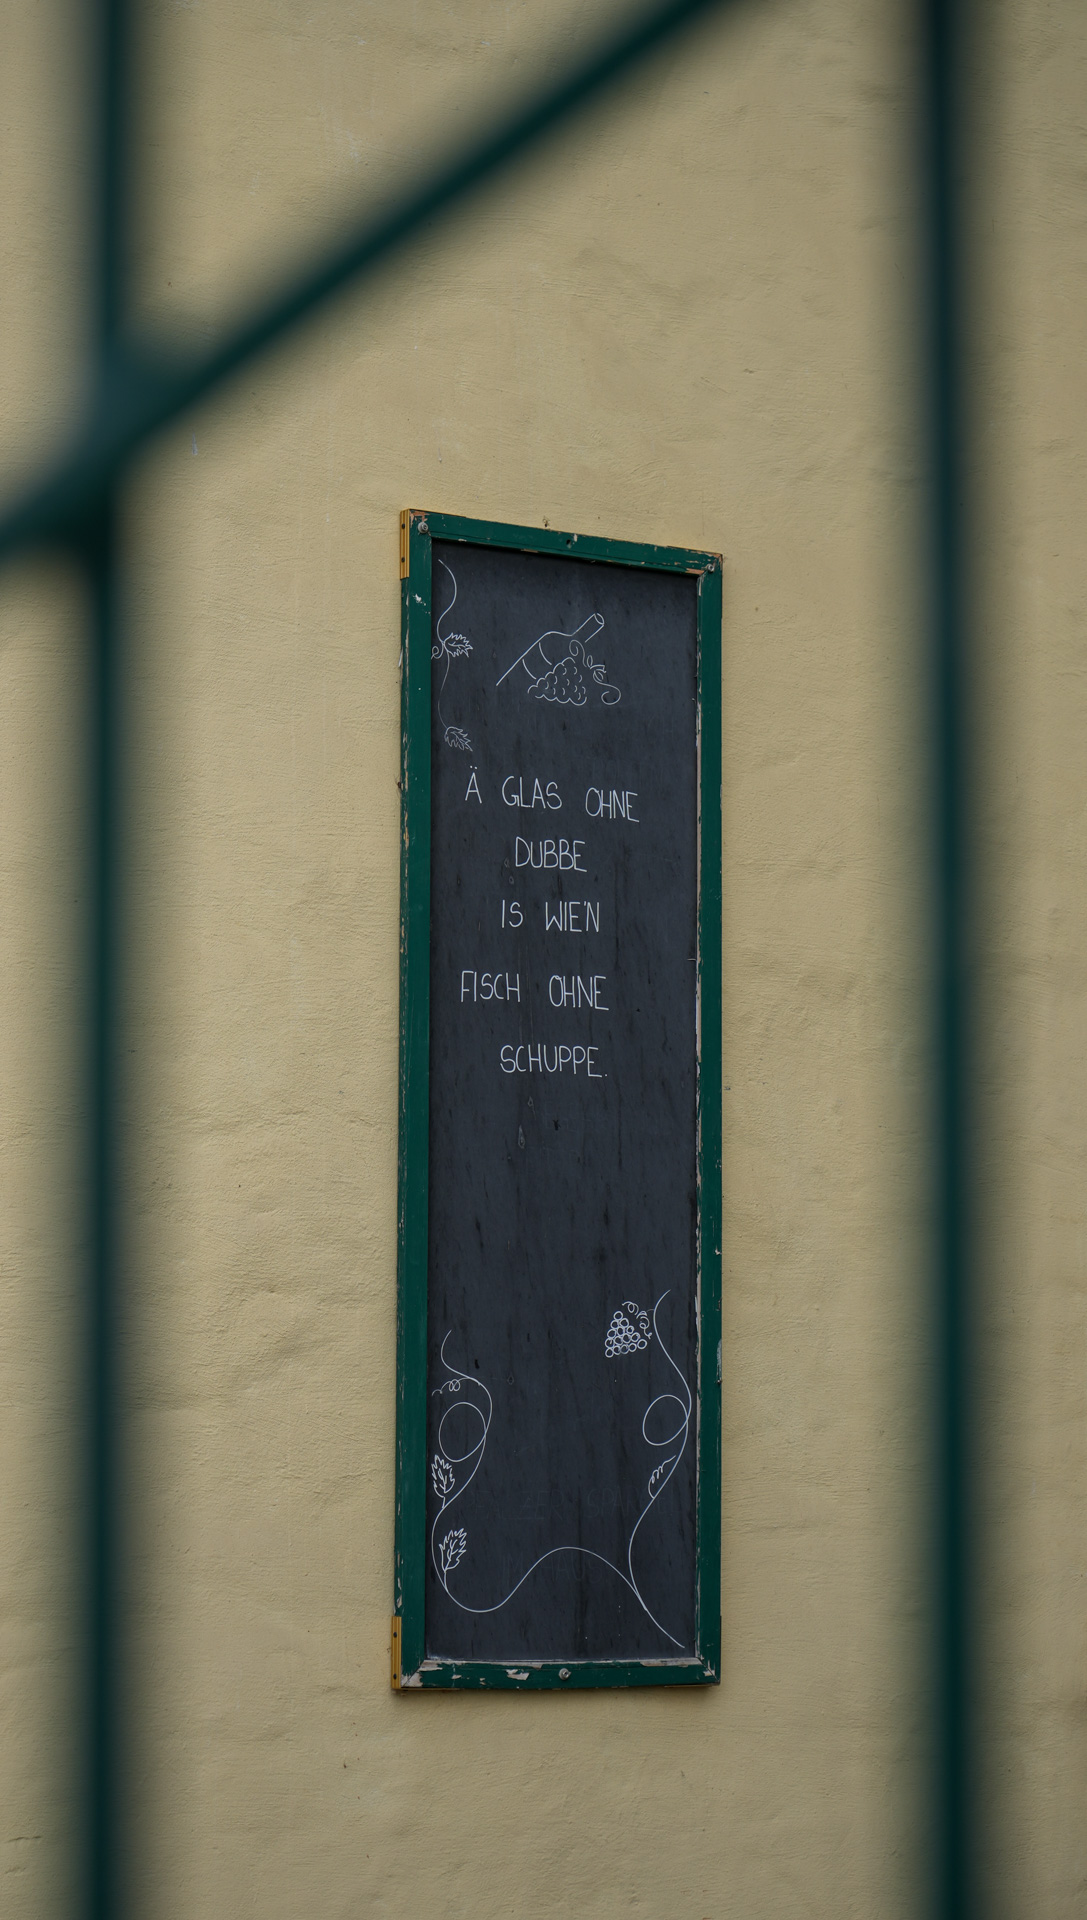 Ä GLAS OHNE
DUBBE
IS WIE'N
FISCH OHNE
SCHUPPE.